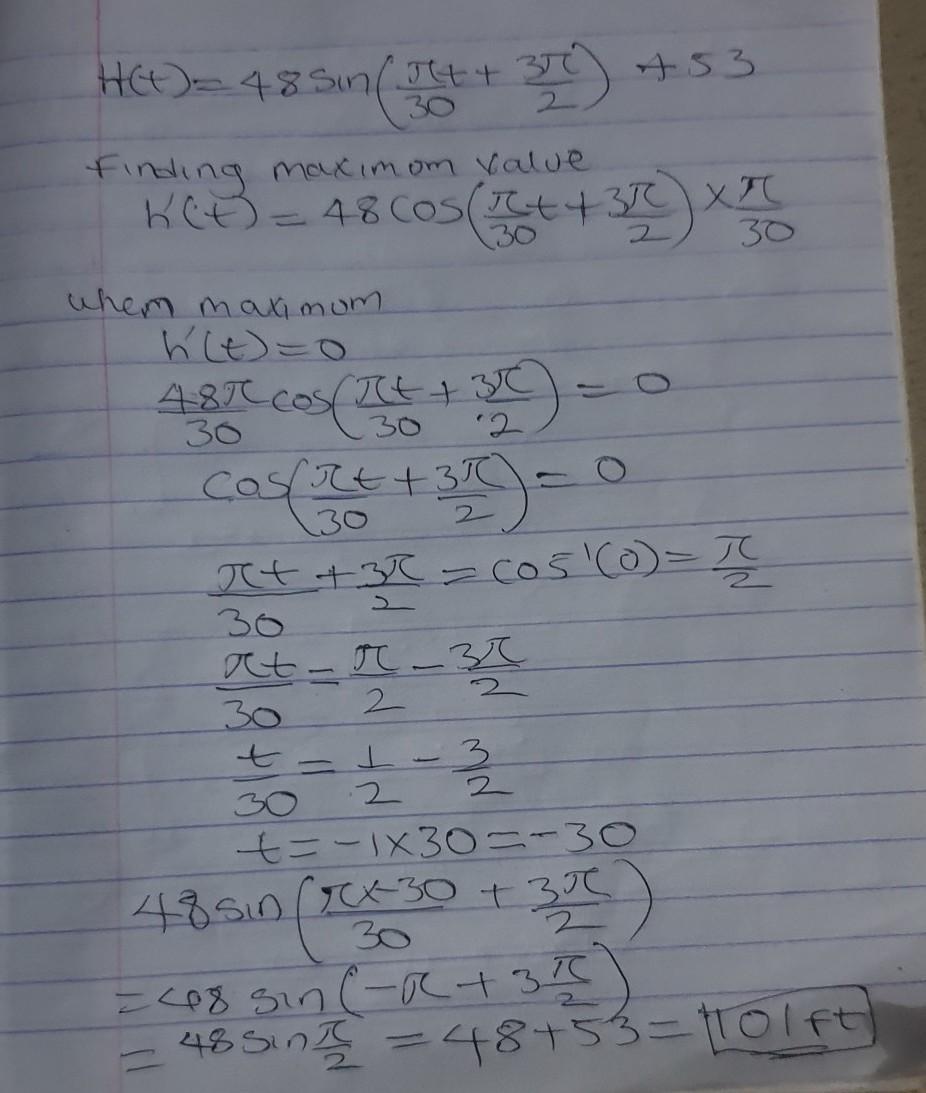 H(t) = 48 sin(πt/30 + 3π/2) + 53
Finding maximom value
h'(t) = 48 cos(πt/30 + 3π/2) × π/30
when maximom
h'(t) = 0
48π/30 cos(πt/30 + 3π/2) = 0
cos(πt/30 + 3π/2) = 0
πt/30 + 3π/2 = cos⁻¹(0) = π/2
πt/30 = π/2 - 3π/2
t/30 = 1/2 - 3/2
t = -1×30 = -30
48 sin(π×-30/30 + 3π/2)
= 48 sin(-π + 3π/2)
= 48 sin π/2 = 48 + 53 = 101ft